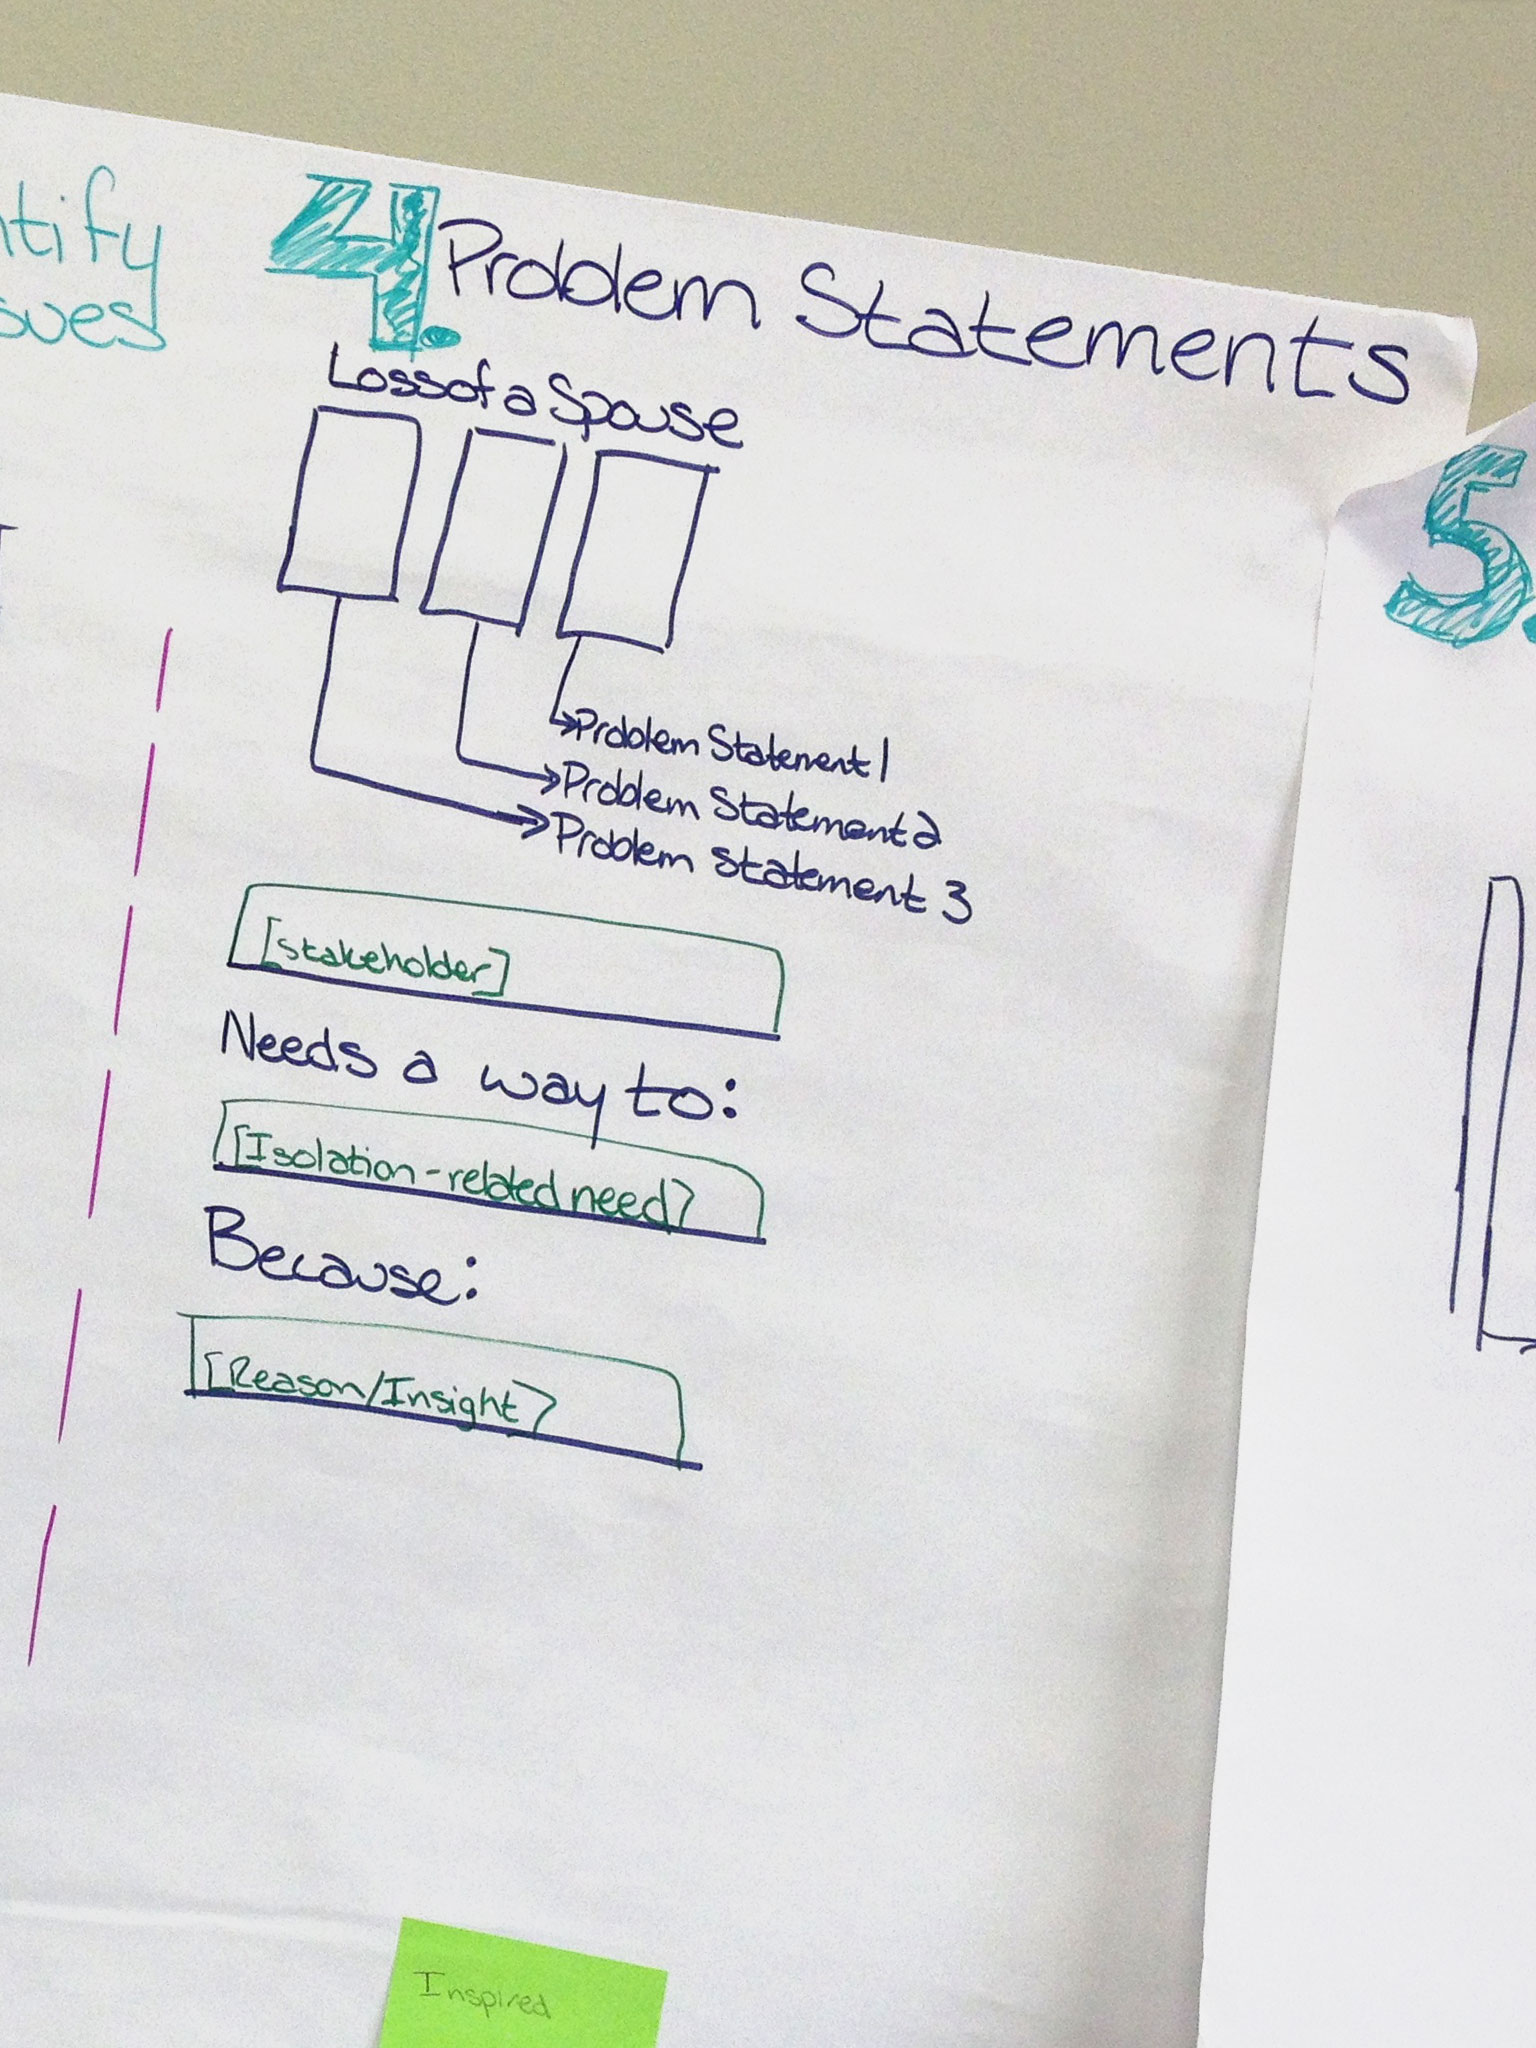 4. Problem Statements
Loss of a Spouse
Problem Statement 1
Problem Statement 2
Problem Statement 3
[stakeholder]
Needs a way to:
[Isolation-related need]
Because:
[Reason/Insight]
Inspired
5.